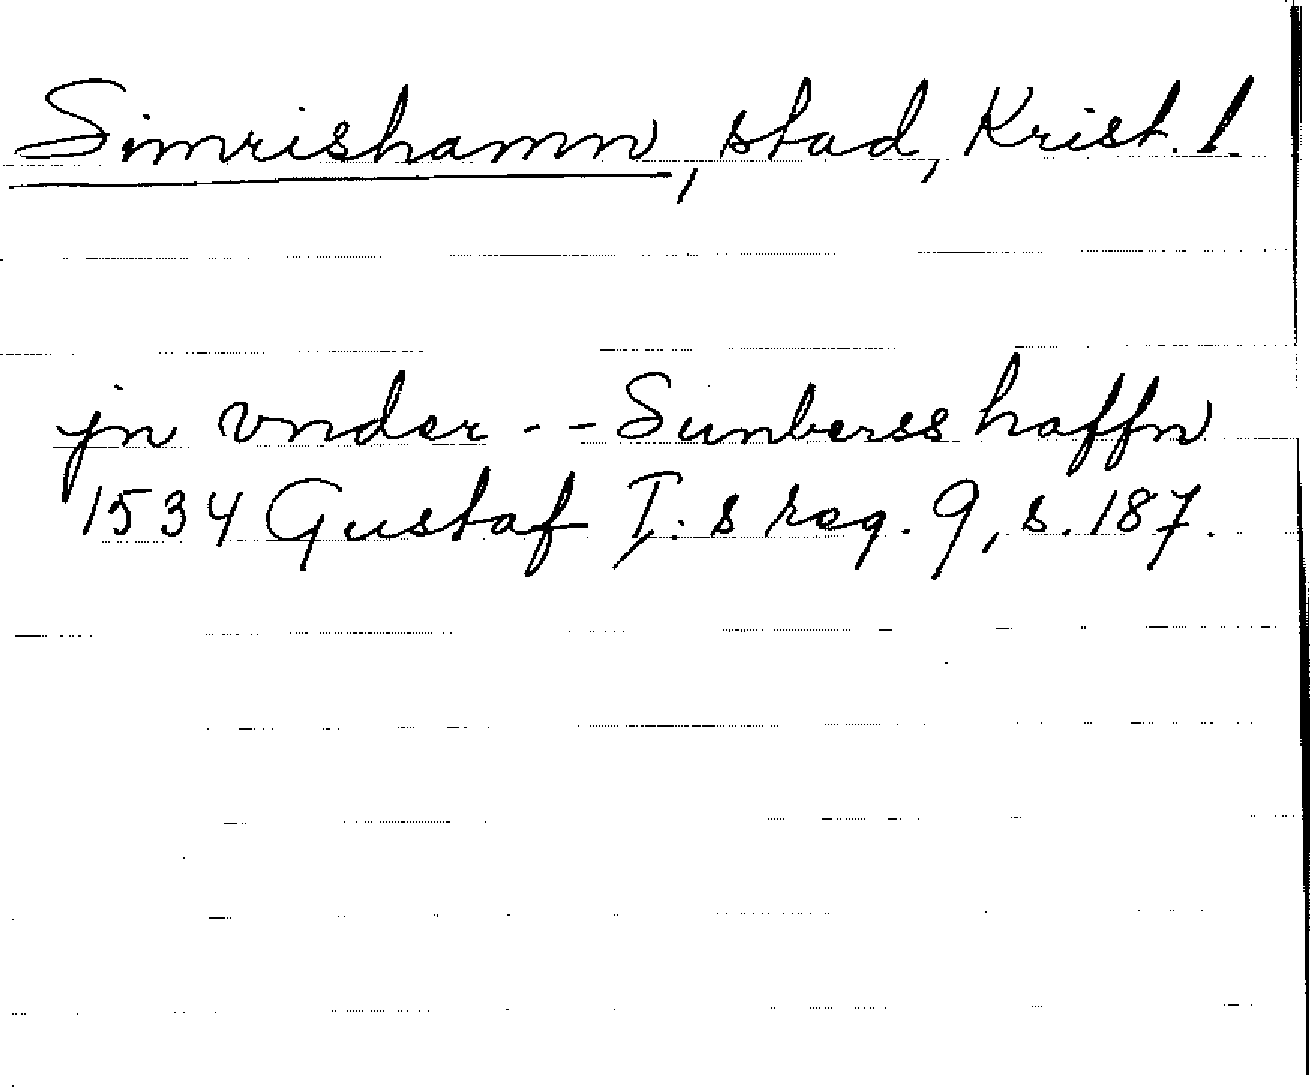 Simrishamn, stad, Krist. l.
jn vnder -- Sunberss haffn
1534 Gustaf I:s reg. 9, s. 187.